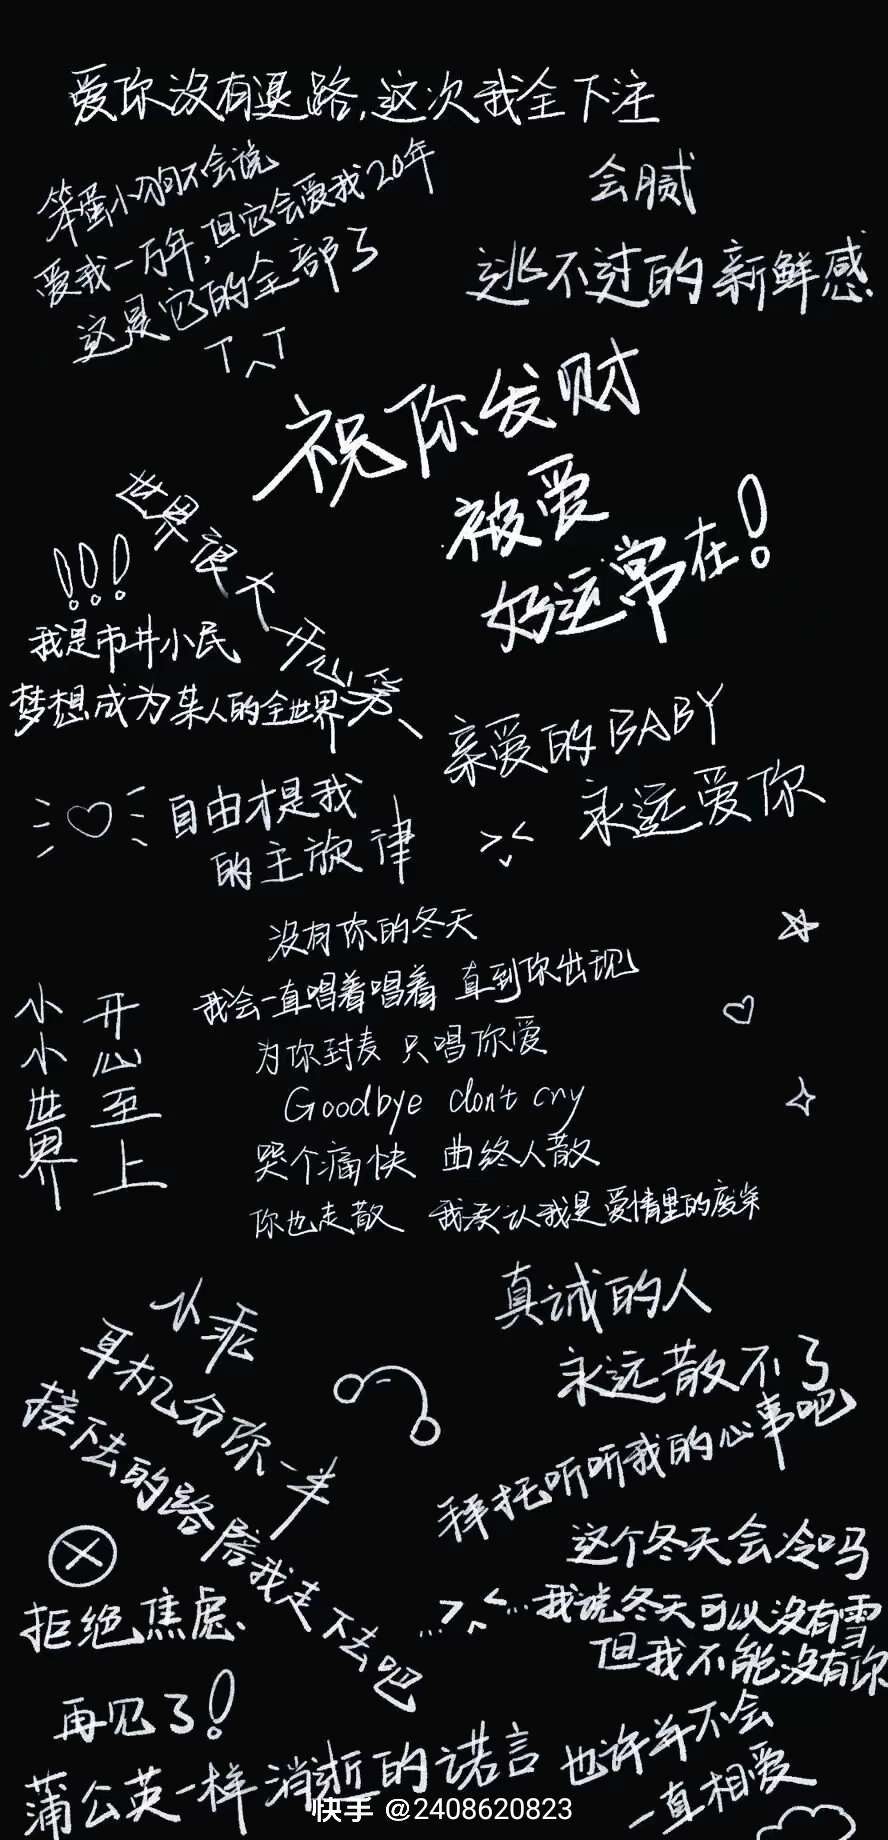 爱你没有退路,这次我全下注
笨蛋小狗不会说
爱我一万年,但它会爱我20年
这是它的全部了
T^T
会腻
逃不过的新鲜感
祝你发财
被爱
好运常在!
世界很大 开心第一
!!!
我是市井小民
梦想成为某人的全世界
亲爱的BABY
永远爱你
自由才是我
的主旋律
没有你的冬天
我会一直唱着唱着 直到你出现
为你封麦 只唱你爱
Goodbye don't cry
哭个痛快 曲终人散
你也走散 我承认我是爱情里的废柴
小小世界
开心至上
真诚的人
永远散不了
乖
耳机分你一半
接下去的路陪我走下去吧
拜托听听我的心事吧
这个冬天会冷吗
我说冬天可以没有雪
但我不能没有你
拒绝焦虑
再见了!
蒲公英一样消逝的诺言
也许并不会
一直相爱
快手 @2408620823